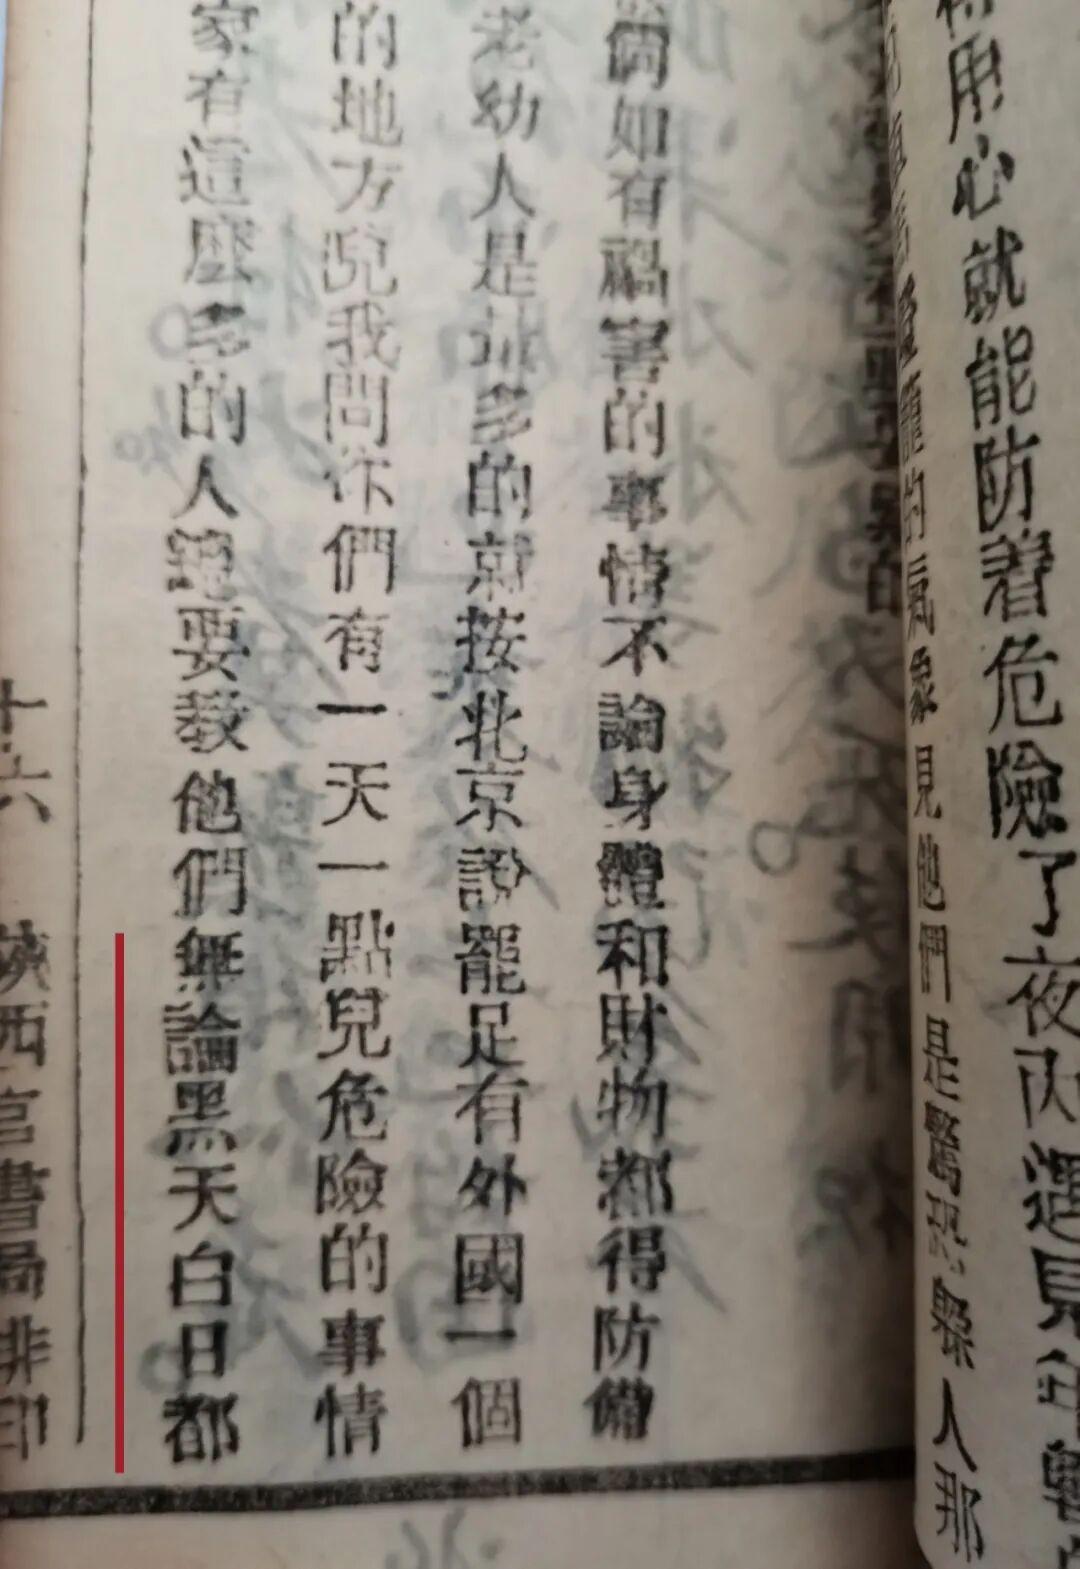 用心就能防着危險了夜內遇見年
的氣象見他們是驚恐躲人那
倘如有禍害的事情不論身體和財物都得防備
老幼人是多的就按北京說罷足有外國一個
的地方兒我問你們有一天一點兒危險的事情
家有這麼多的人總要教他們無論黑天白日都
十六 陝西官書局排印